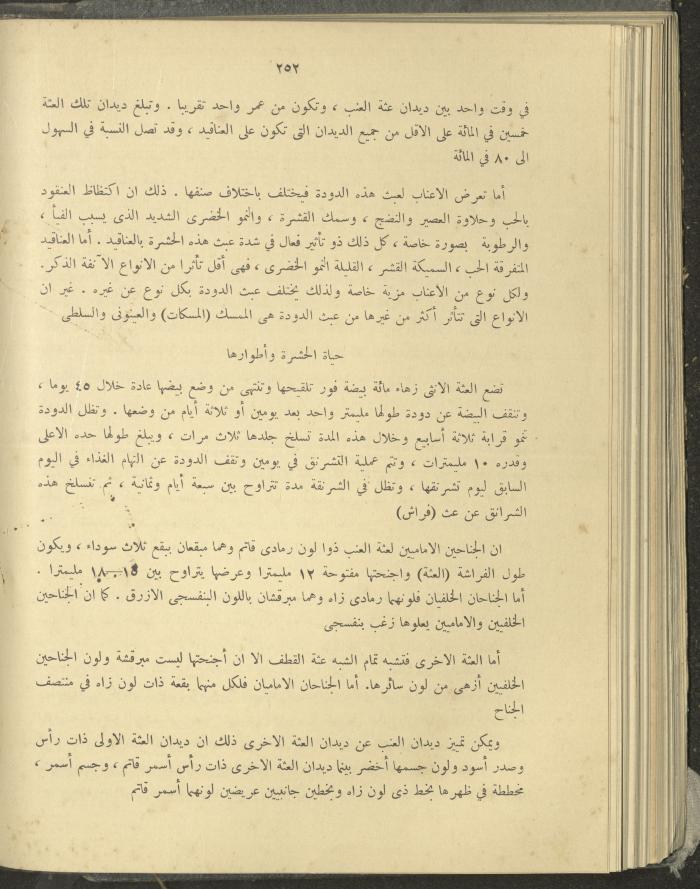 ٢٥٢
في وقت واحد بين ديدان عثة العنب ، وتكون من عمر واحد تقريبا . وتبلغ ديدان تلك العثة
خمسين في المائة على الاقل من جميع الديدان التي تكون على العناقيد ، وقد تصل النسبة في السهول
الى ٨٠ في المائة
أما تعرض الاعناب لعبث هذه الدودة فيختلف باختلاف صنفها . ذلك ان اكتظاظ العنقود
بالحب وحلاوة العصير والنضج ، وسمك القشرة ، والنمو الخضرى الشديد الذى يسبب الفيأ ،
والرطوبة بصورة خاصة ، كل ذلك ذو تأثير فعال في شدة عبث هذه الحشرة بالعناقيد . أما العناقيد
المتفرقة الحب ، السميكة القشر ، القليلة النمو الخضرى ، فهى أقل تأثرا من الانواع الآنفة الذكر.
ولكل نوع من الاعناب مزية خاصة ولذلك يختلف عبث الدودة بكل نوع عن غيره . غير ان
الانواع التي تتأثر أكثر من غيرها من عبث الدودة هى الممسك (المسكات) والعينونى والسلطى
حياة الحشرة وأطوارها
تضع العثة الانثى زهاء مائة بيضة فور تلقيحها وتنتهى من وضع بيضها عادة خلال ٤٥ يوما ،
وتنقف البيضة عن دودة طولها مليمتر واحد بعد يومين أو ثلاثة أيام من وضعها . وتظل الدودة
تنمو قرابة ثلاثة أسابيع وخلال هذه المدة تسلخ جلدها ثلاث مرات ، ويبلغ طولها حده الاعلى
وقدره ١٠ مليمترات ، وتتم عملية التشرنق في يومين وتقف الدودة عن التهام الغذاء في اليوم
السابق ليوم تشرنقها ، وتظل في الشرنقة مدة تتراوح بين سبعة أيام وثمانية ، ثم تنسلخ هذه
الشرانق عن عث (فراش)
ان الجناحين الاماميين لعثة العنب ذوا لون رمادى قاتم وهما مبقعان ببقع ثلاث سوداء ، ويكون
طول الفراشة (العثة) واجنحتها مفتوحة ١٢ مليمترا وعرضها يتراوح بين مليمترا .
أما الجناحان الخلفيان فلونهما رمادى زاه وهما مبرقشان باللون البنفسجى الازرق . كما ان الجناحين
الخلفيين والاماميين يعلوها زغب بنفسجى
أما العثة الاخرى فتشبه تمام الشبه عثة القطف الا ان أجنحتها ليست مبرقشة ولون الجناحين
الخلفيين أزهى من لون سائرها. أما الجناحان الاماميان فلكل منهما بقعة ذات لون زاه في منتصف
الجناح
ويمكن تمييز ديدان العنب عن ديدان العثة الاخرى ذلك ان ديدان العثة الاولى ذات رأس
وصدر أسود ولون جسمها أخضر بينما ديدان العثة الاخرى ذات رأس أسمر قاتم ، وجسم أسمر ،
مخططة في ظهرها بخط ذى لون زاه وبخطين جانبيين عريضين لونهما أسمر قاتم